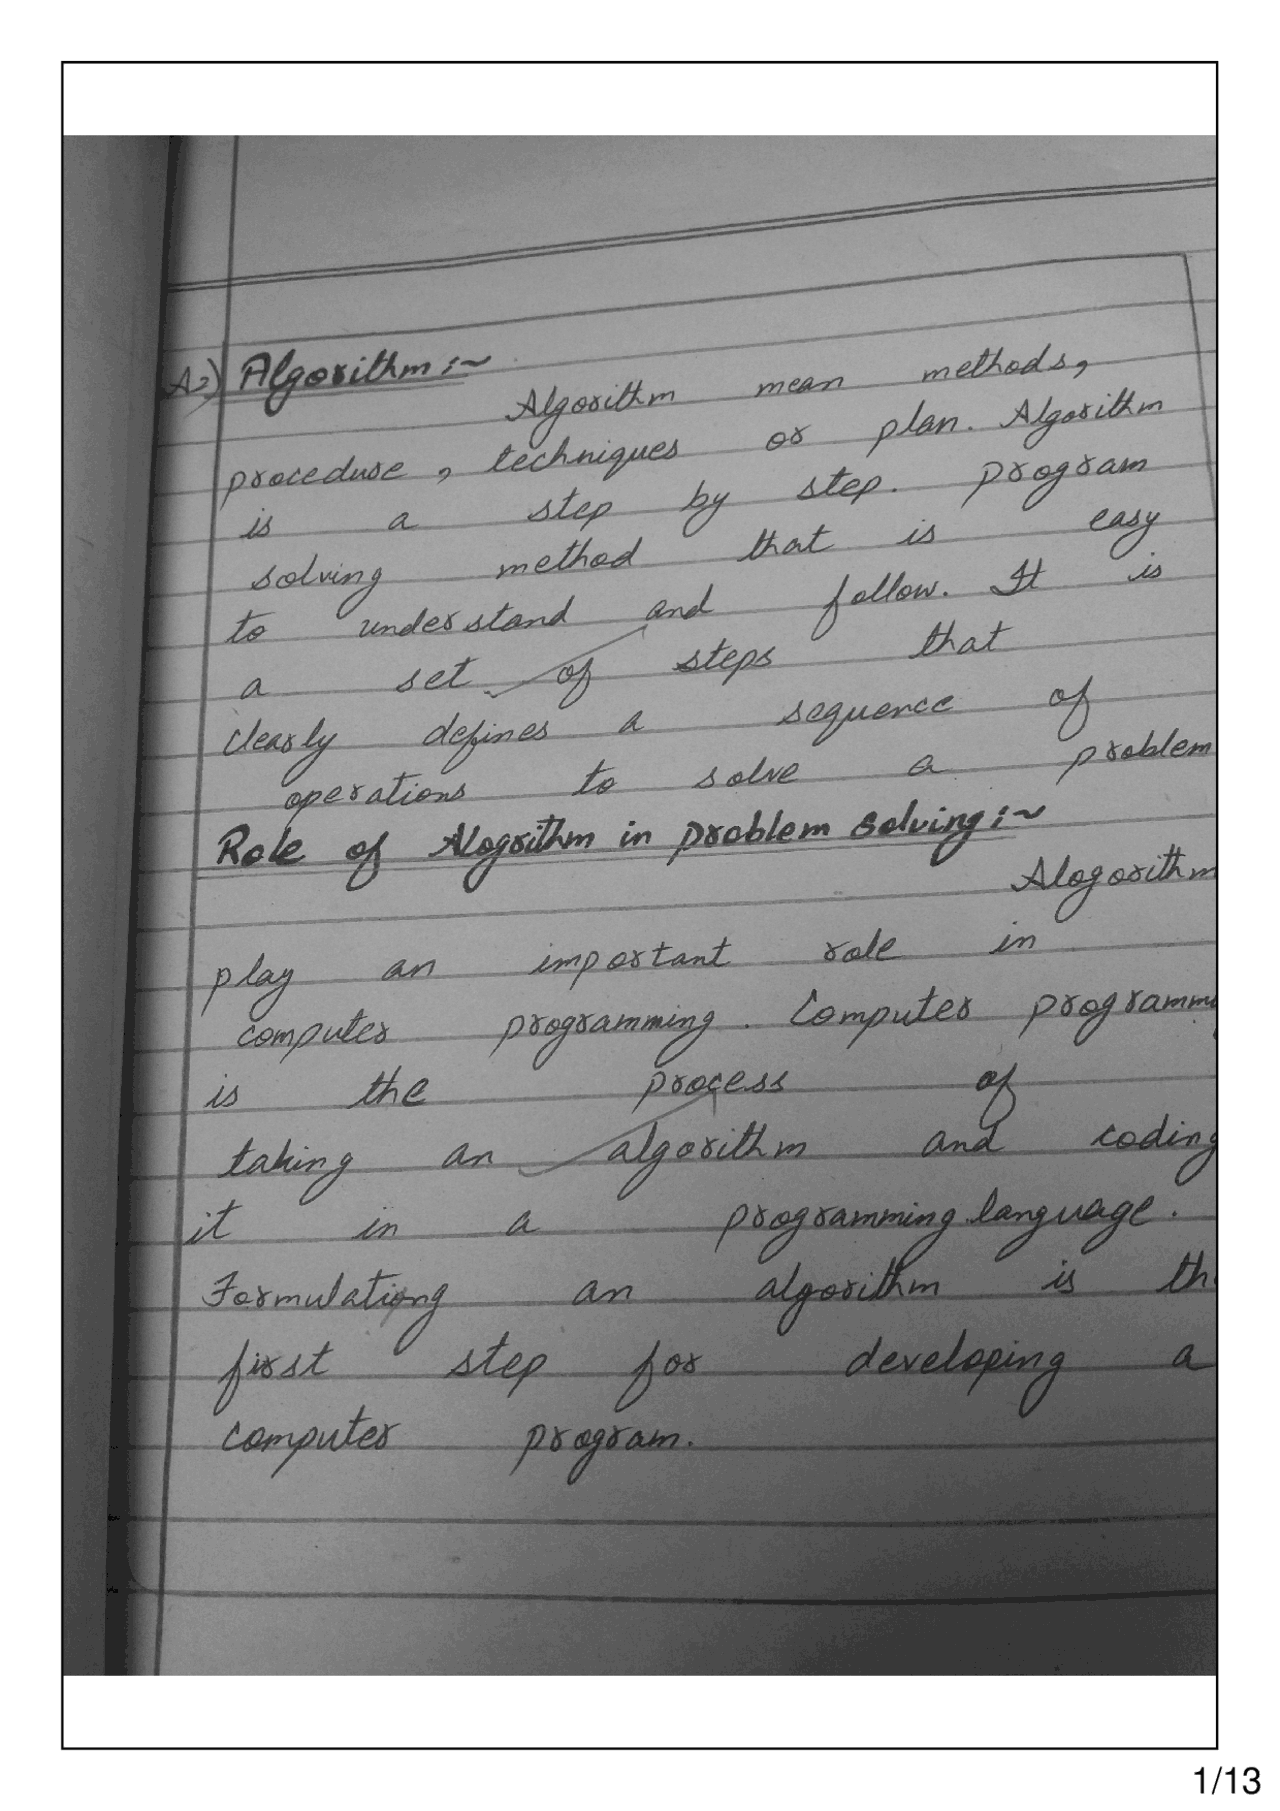 A2) Algorithm :~
Algorithm mean methods,
procedure, techniques or plan. Algorithm
is a step by step. program
solving method that is easy
to understand and follow. It is
a set of steps that
clearly defines a sequence of
operations to solve a problem
Role of Alogrithm in problem solving :~
Alogorithm
play an important role in
computer programming. Computer programm
is the process of
taking an algorithm and coding
it in a programming language.
Formulationg an algorithm is th
first step for developing a
computer program.
1/13